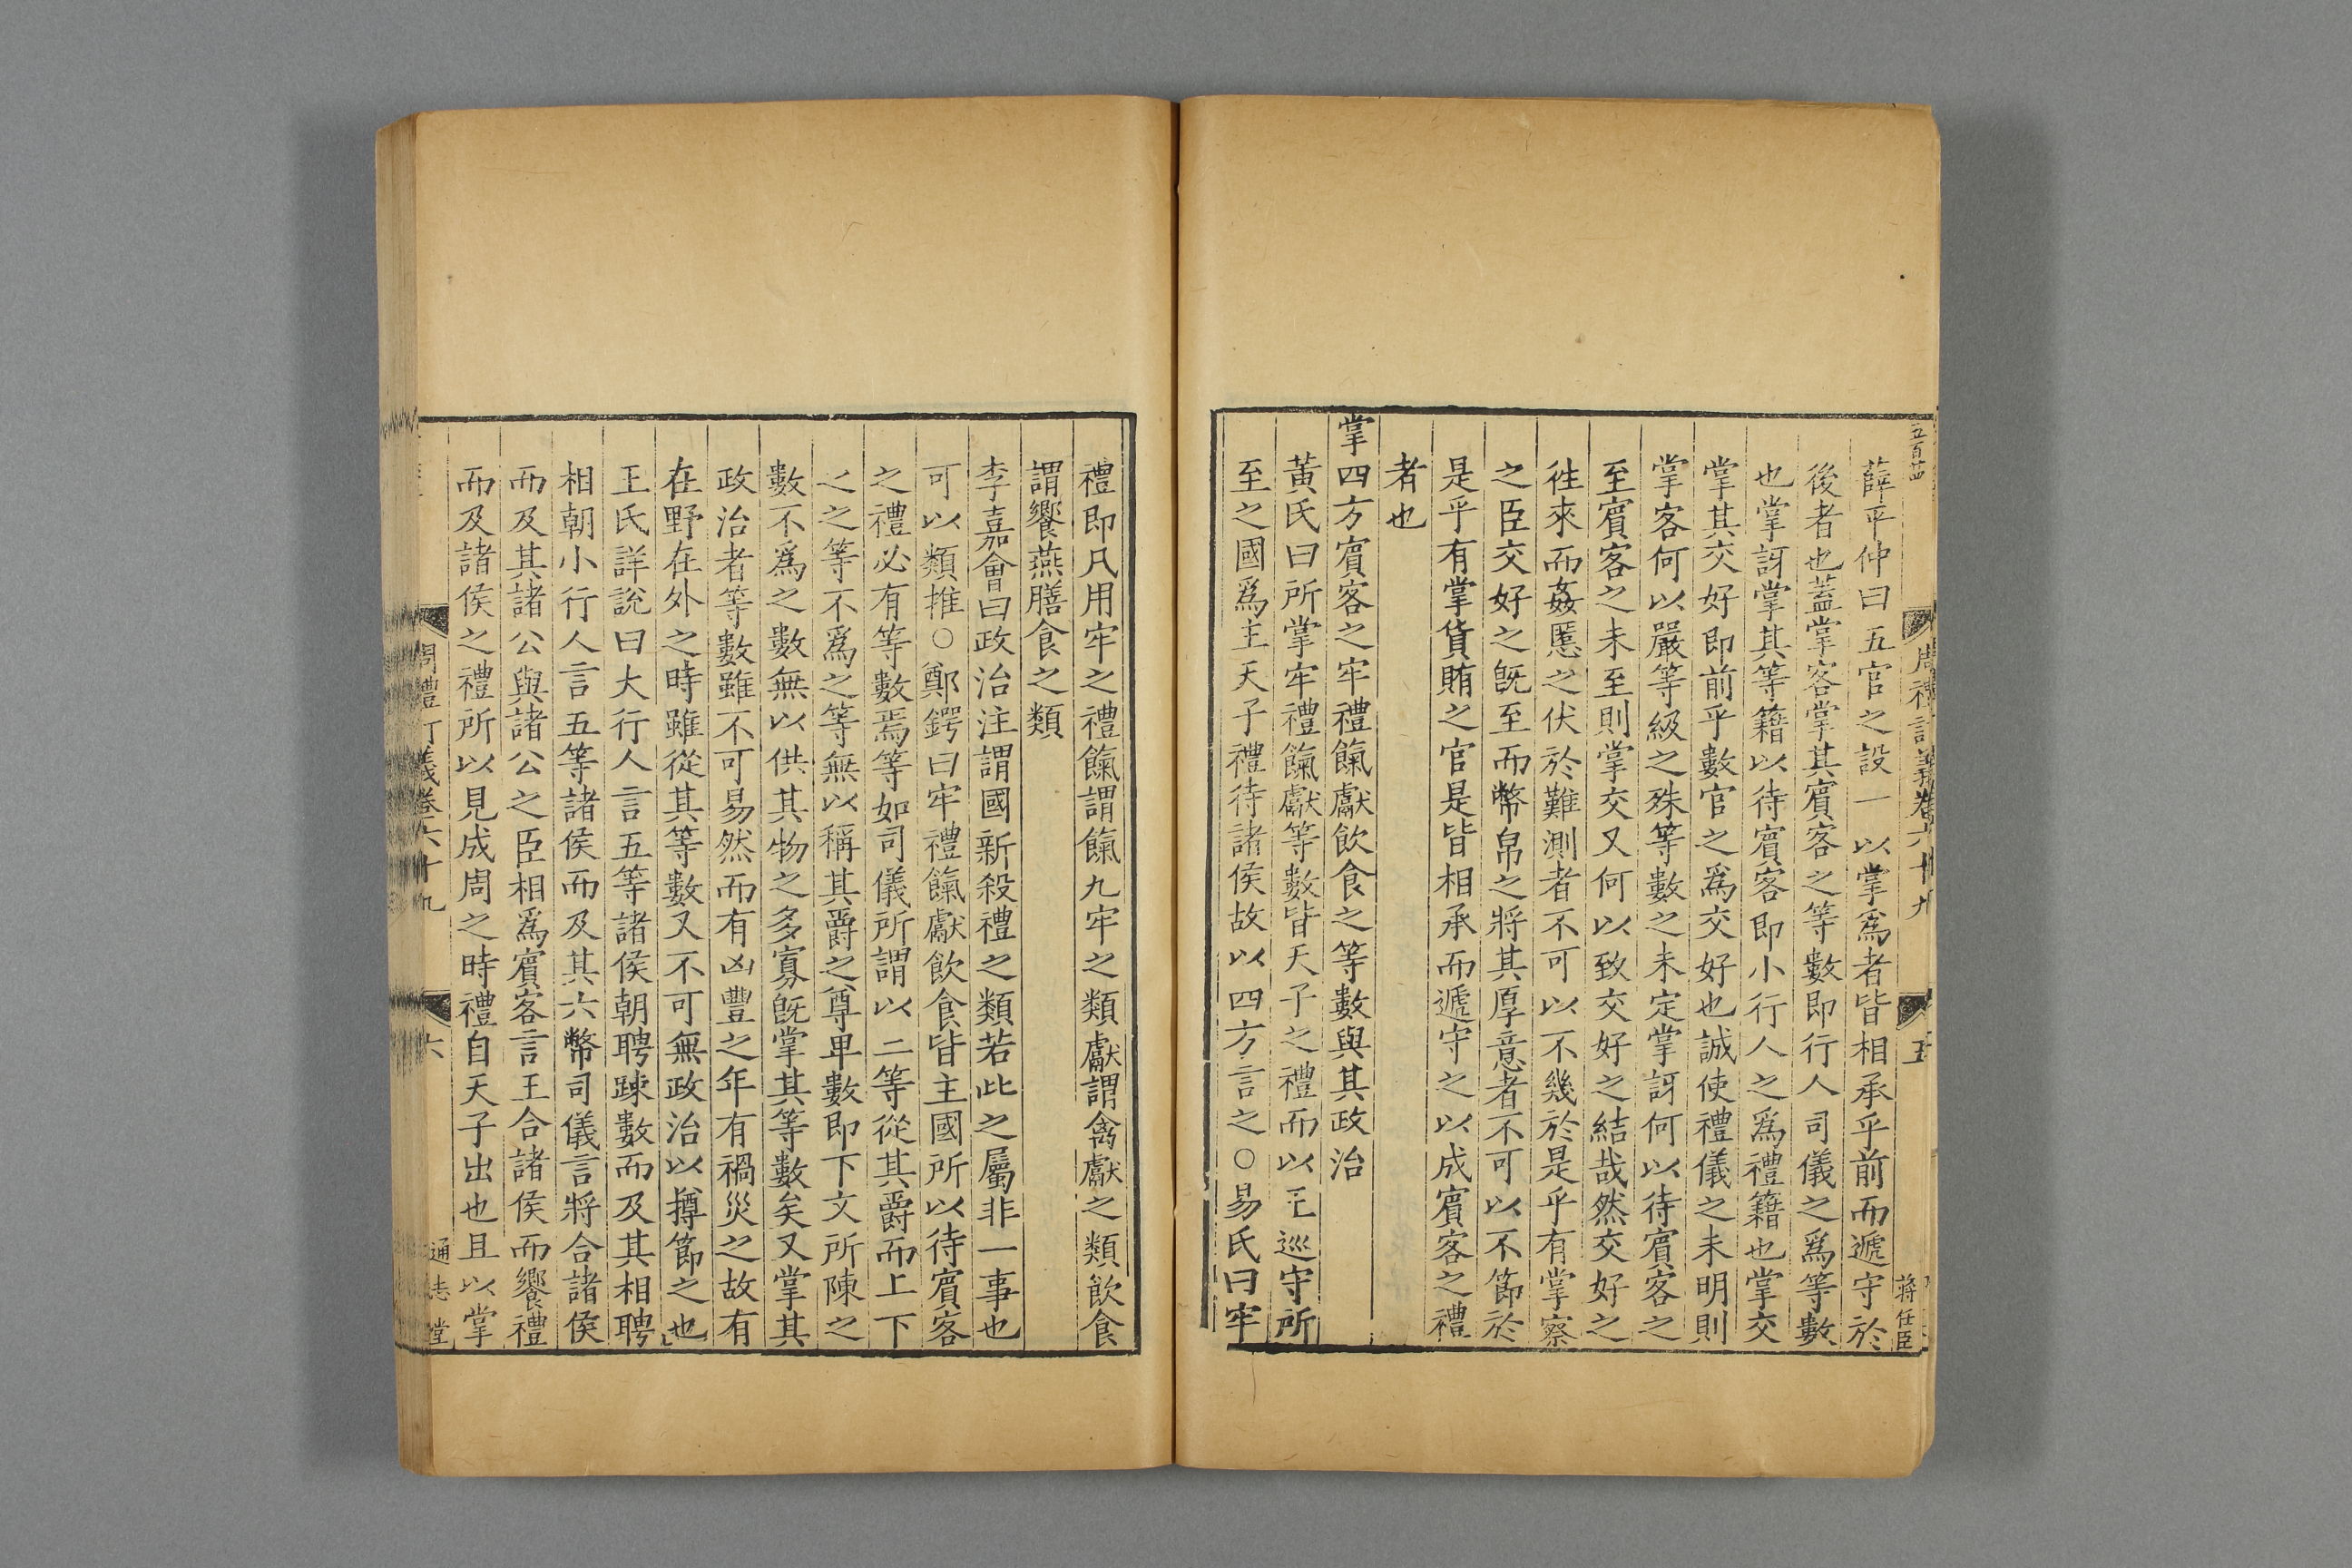 薛平仲曰五官之設一以掌爲者皆相承乎前而遞守於
後者也蓋掌客掌其賓客之等數即行人司儀之爲等數
也掌訝掌其等籍以待賓客即小行人之爲禮籍也掌交
掌其交好即前乎數官之爲交好也誠使禮儀之未明則
掌客何以嚴等級之殊等數之未定掌訝何以待賓客之
至賓客之未至則掌交又何以致交好之結哉然交好之
徃來而姦慝之伏於難測者不可以不幾於是乎有掌察
之臣交好之旣至而幣帛之將其厚意者不可以不節於
是乎有掌貨賄之官是皆相承而遞守之以成賓客之禮
者也
掌四方賓客之牢禮餼獻飲食之等數與其政治
黃氏曰所掌牢禮餼獻等數皆天子之禮而以王巡守所
至之國爲主天子禮待諸侯故以四方言之○易氏曰牢
周禮訂義卷六十九
五
蔣任臣
禮即凡用牢之禮餼謂餼九牢之類獻謂禽獻之類飲食
謂饗燕膳食之類
李嘉會曰政治注謂國新殺禮之類若此之屬非一事也
可以類推○鄭鍔曰牢禮餼獻飲食皆主國所以待賓客
之禮必有等數焉等如司儀所謂以二等從其爵而上下
之之等不爲之等無以稱其爵之尊卑數即下文所陳之
數不爲之數無以供其物之多寡旣掌其等數矣又掌其
政治者等數雖不可易然而有凶豐之年有禍災之故有
在野在外之時雖從其等數又不可無政治以撙節之也
王氏詳說曰大行人言五等諸侯朝聘踈數而及其相聘
相朝小行人言五等諸侯而及其六幣司儀言將合諸侯
而及其諸公與諸公之臣相爲賓客言王合諸侯而饗禮
而及諸侯之禮所以見成周之時禮自天子出也且以掌
周禮訂義卷六十九
六
通志堂